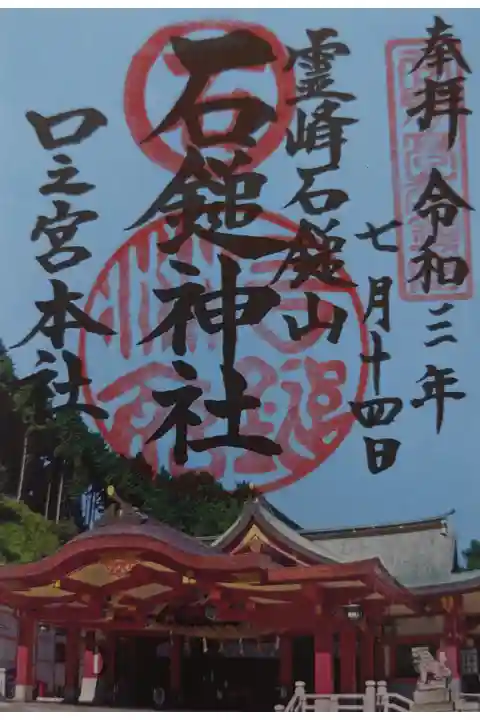 奉拝 令和三年
七月十四日
霊峰石鎚山
石鎚神社
口之宮本社